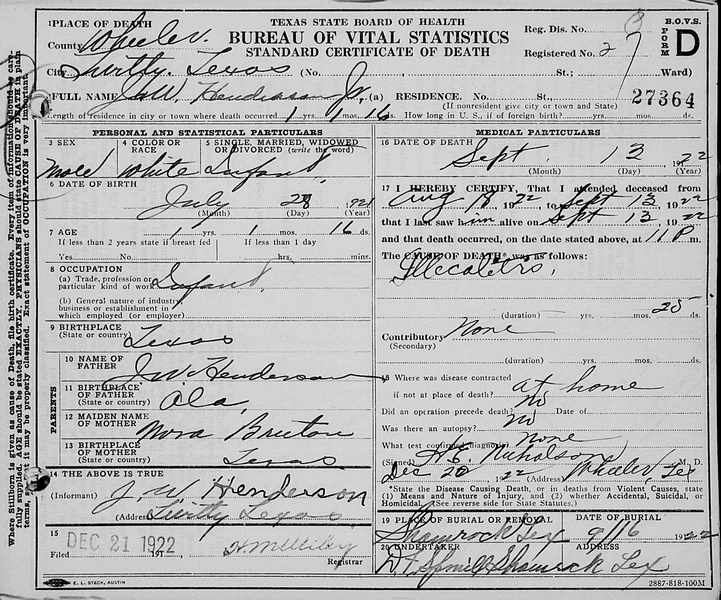 1 PLACE OF DEATH
TEXAS STATE BOARD OF HEALTH
BUREAU OF VITAL STATISTICS
STANDARD CERTIFICATE OF DEATH
Reg. Dis. No.
Registered No. 2
B.O.V.S.
FORM
D
County Wheeler.
City Twitty. Texas (No. St.; Ward)
2 FULL NAME J.W. Henderson Jr. (a) RESIDENCE. No. St.,
(If nonresident give city or town and State)
27364
Length of residence in city or town where death occurred 1 yrs. 1 mos. 16 ds. How long in U. S., if of foreign birth? yrs. mos. ds.
PERSONAL AND STATISTICAL PARTICULARS
3 SEX
Male
4 COLOR OR RACE
White
5 SINGLE, MARRIED, WIDOWED
OR DIVORCED (write the word)
Infant
6 DATE OF BIRTH
July 28 1921
(Month) (Day) (Year)
7 AGE 1 yrs. 1 mos. 16 ds.
If less than 2 years state if breast fed If less than 1 day
Yes No hrs. mins.
8 OCCUPATION
(a) Trade, profession or
particular kind of work Infant.
(b) General nature of industry,
business or establishment in
which employed (or employer)
9 BIRTHPLACE
(State or country) Texas
PARENTS
10 NAME OF
FATHER J.W. Henderson
11 BIRTHPLACE
OF FATHER
(State or country) Ala.
12 MAIDEN NAME
OF MOTHER Nora Bruton
13 BIRTHPLACE
OF MOTHER
(State or country) Texas
14 THE ABOVE IS TRUE
(Informant) J W Henderson
(Address) Twitty Texas
15
Filed DEC 21 1922 191
Registrar
MEDICAL PARTICULARS
16 DATE OF DEATH
Sept. 13 1922
(Month) (Day) (Year)
17 I HEREBY CERTIFY, That I attended deceased from
Aug 18 1922, to Sept 13, 1922
that I last saw him alive on Sept 13 1922
and that death occurred, on the date stated above, at 11 P m.
The CAUSE OF DEATH* was as follows:
(duration) yrs. mos. 25 ds.
Contributory None
(Secondary)
(duration) yrs. mos. ds.
18 Where was disease contracted
if not at place of death? at home
Did an operation precede death? no Date of
Was there an autopsy? no
What test confirmed diagnosis? None
(Signed) Nicholson M. D.
Dec 20 1922 (Address) Wheeler, Tex
*State the Disease Causing Death, or in deaths from Violent Causes, state
(1) Means and Nature of Injury, and (2) whether Accidental, Suicidal, or
Homicidal. (See reverse side for State Statutes.)
19 PLACE OF BURIAL OR REMOVAL
Shamrock Tex
DATE OF BURIAL
9/16 1922
20 UNDERTAKER
ADDRESS
Shamrock Tex
E. L. STECK, AUSTIN
2887-818-100M
Where Stillborn is given as cause of Death, file birth certificate. Every item of information should be care-
fully supplied. AGE should be stated EXACTLY. PHYSICIANS should state CAUSE OF DEATH in plain
terms, so that it may be properly classified. Exact statement of OCCUPATION is very important.